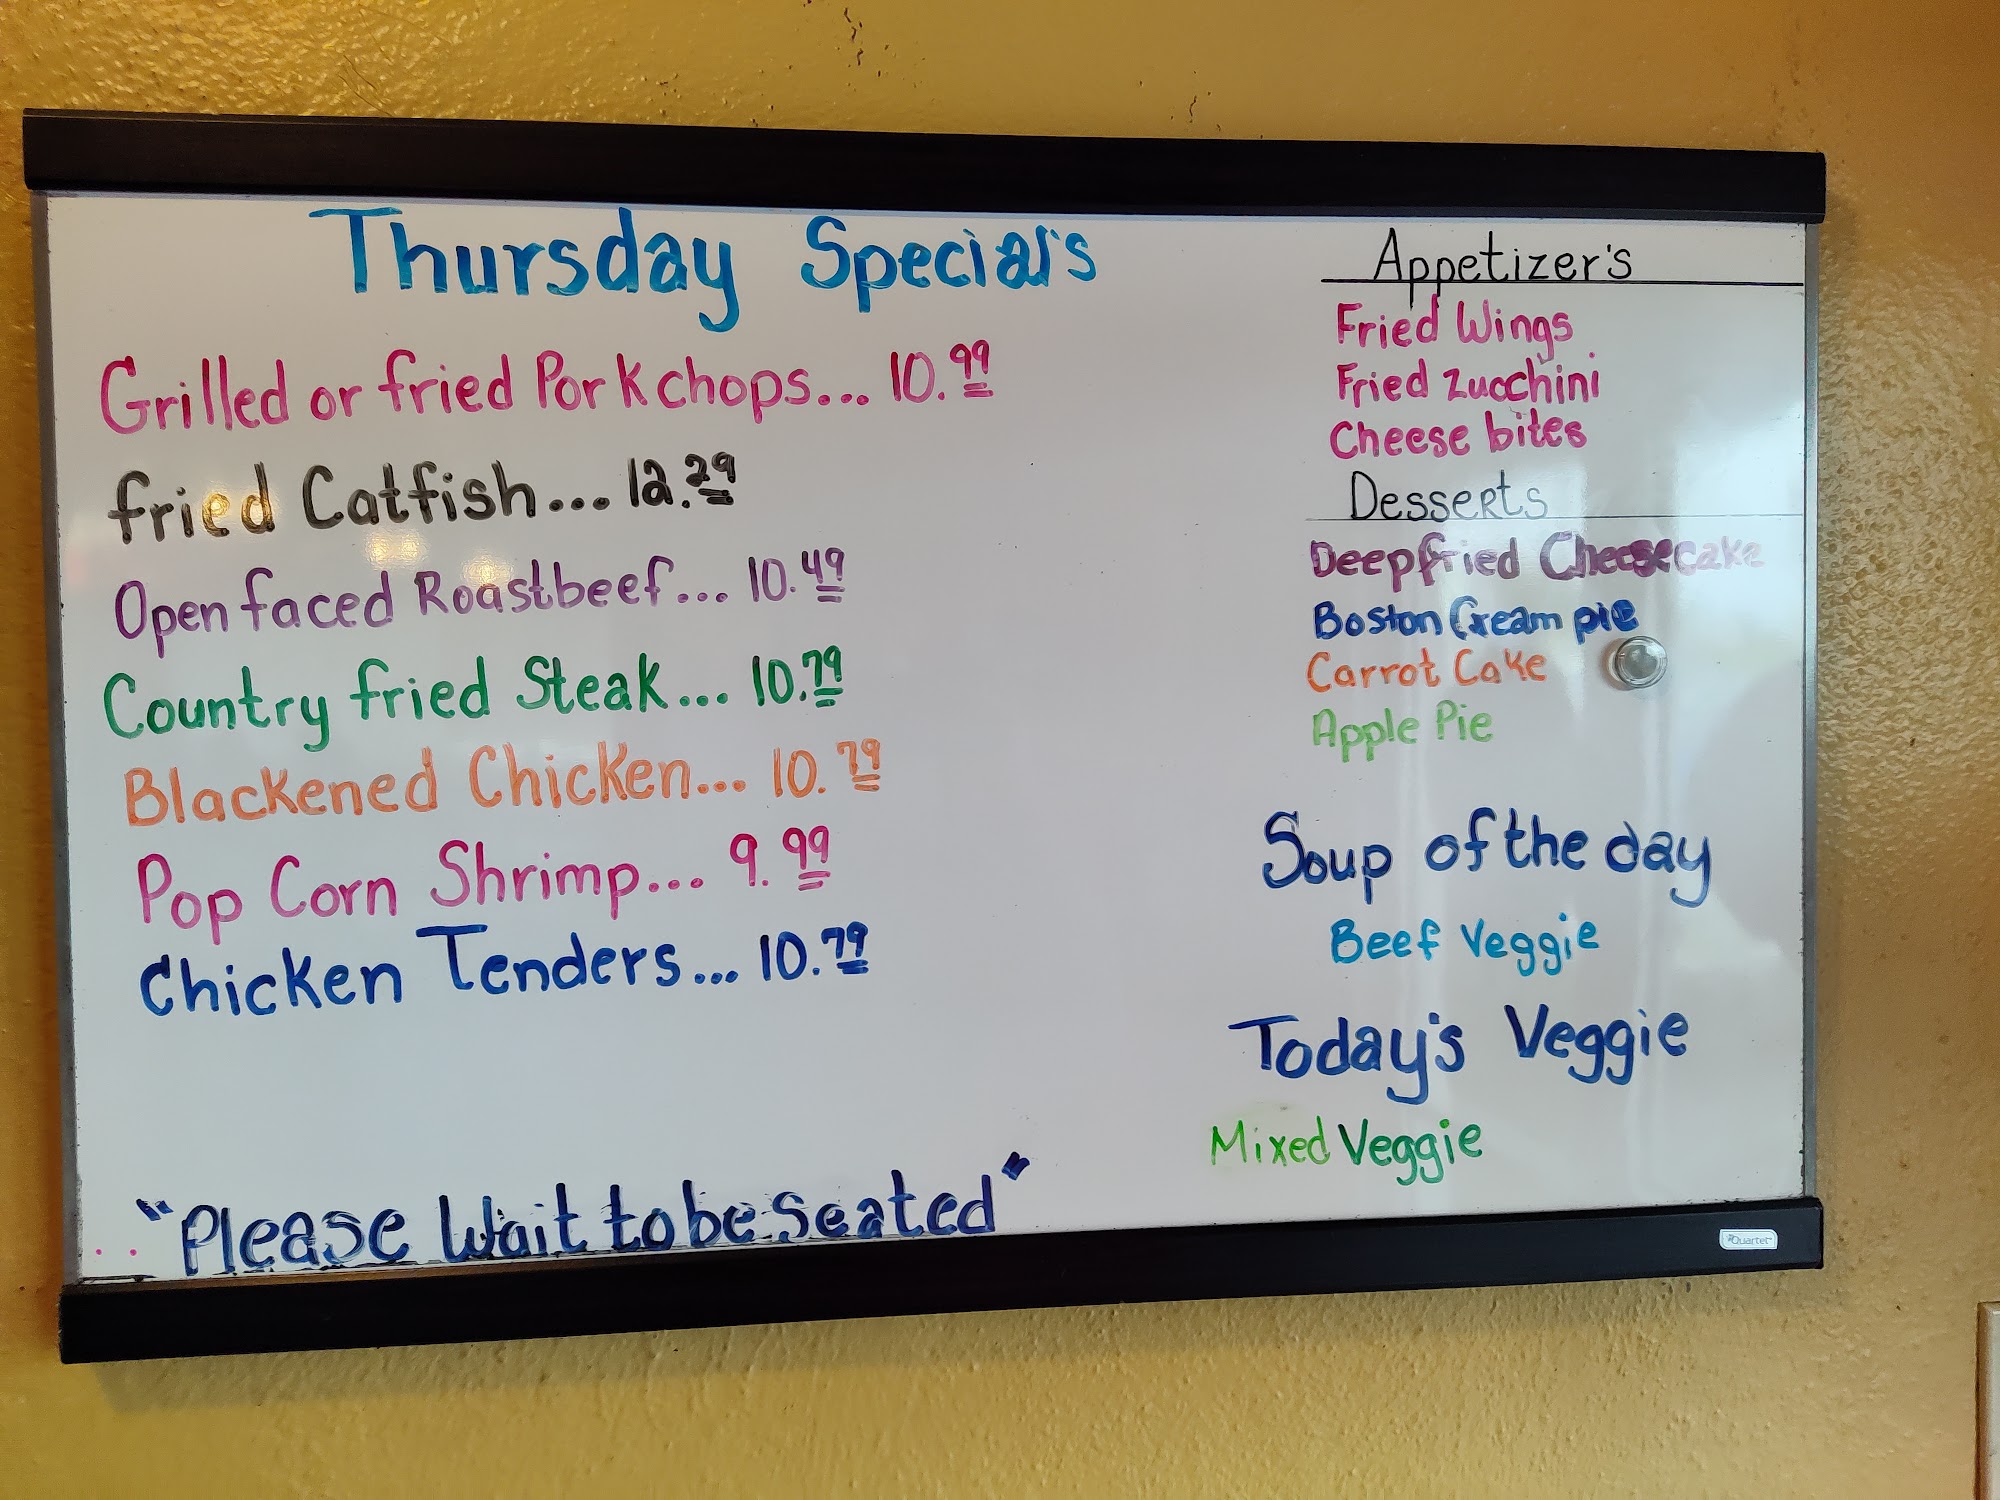 Thursday Special's
Grilled or fried Pork chops... 10.99
fried Catfish... 12.29
Open faced Roastbeef... 10.49
Country fried Steak... 10.79
Blackened Chicken... 10.79
Pop Corn Shrimp... 9.99
Chicken Tenders... 10.79
"Please Wait to be Seated"
Appetizer's
Fried Wings
Fried Zucchini
Cheese bites
Desserts
Deepfried Cheesecake
Boston Cream pie
Carrot Cake
Apple Pie
Soup of the day
Beef Veggie
Today's Veggie
Mixed Veggie
Quartet